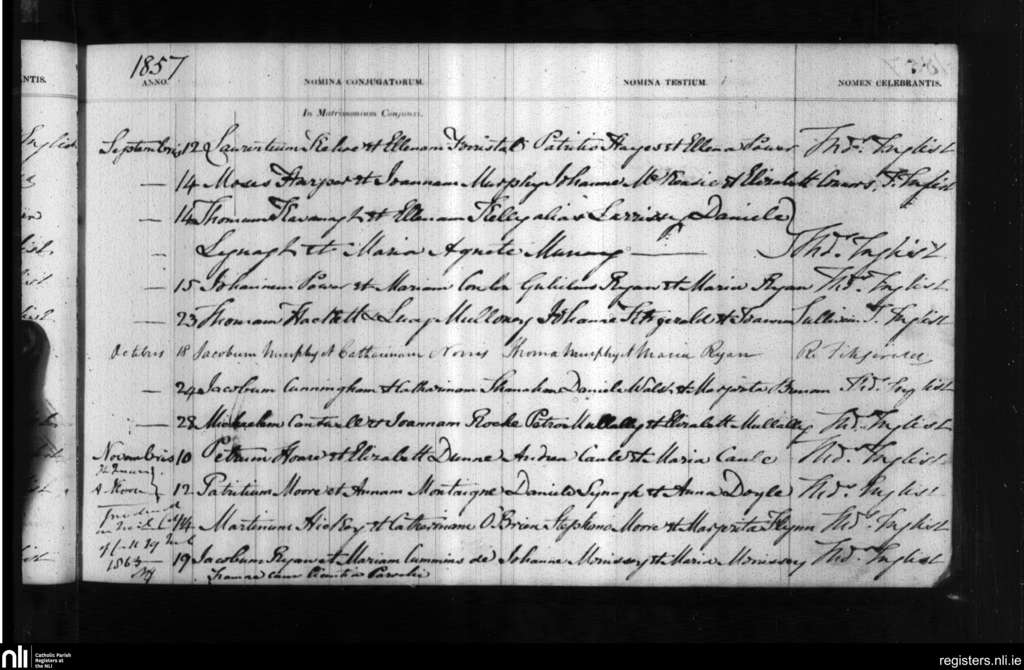 NTIS.
1857
ANNO.
NOMINA CONJUGATORUM.
NOMINA TESTIUM.
NOMEN CELEBRANTIS.
In Matrimonium Conjunxi.
Septembris 12 Laurentium Kehoe et Ellenam Patritio Hayes et Ellena Power Thos. Inglish
— 14 Moses Harper et Joannam Murphy Johanne McKensie et Elizabeth Connors T. Inglish
— 14 Thomam Kavanagh et Ellenam Kelly alias Daniele
— Lynagh et Maria Agnete Murray — Thos. Inglish
— 15 Johannem Power et Mariam Gulielmo Ryan et Maria Ryan Thos. Inglish
— 23 Thomam Hackett & Lucy Mullowney Johanne Fitzgerald et Joanna Sullivan T. Inglish
Octobris 18 Jacobum Murphy et Catharinam Norris Thoma Murphy et Maria Ryan R. Fitzgerald
— 24 Jacobum Cunningham et Catharinam Shanahan Daniele Walsh et Margarita Thos. Ingl
— 28 Michaelem Cantwell et Joannam Roche Mullally et Elizabeth Mullally Thos. Inglish
Novembris 10 Petrum Hoare et Elizabeth Dunne Andrea Caule et Maria Caule Thos. Inglish
12 Patritium Moore et Annam Montaigne Daniele Lynagh et Anna Doyle Thos. Inglish
14 Martinum Hickey et Catharinam O'Brien Stephano Moore et Margarita Flynn Thos. Inglish
1863
19 Jacobum Ryan et Mariam Cummins de Johanne Morrissey et Maria Morrissey Thos. Inglish
nli
Catholic Parish
Registers at
the NLI
registers.nli.ie